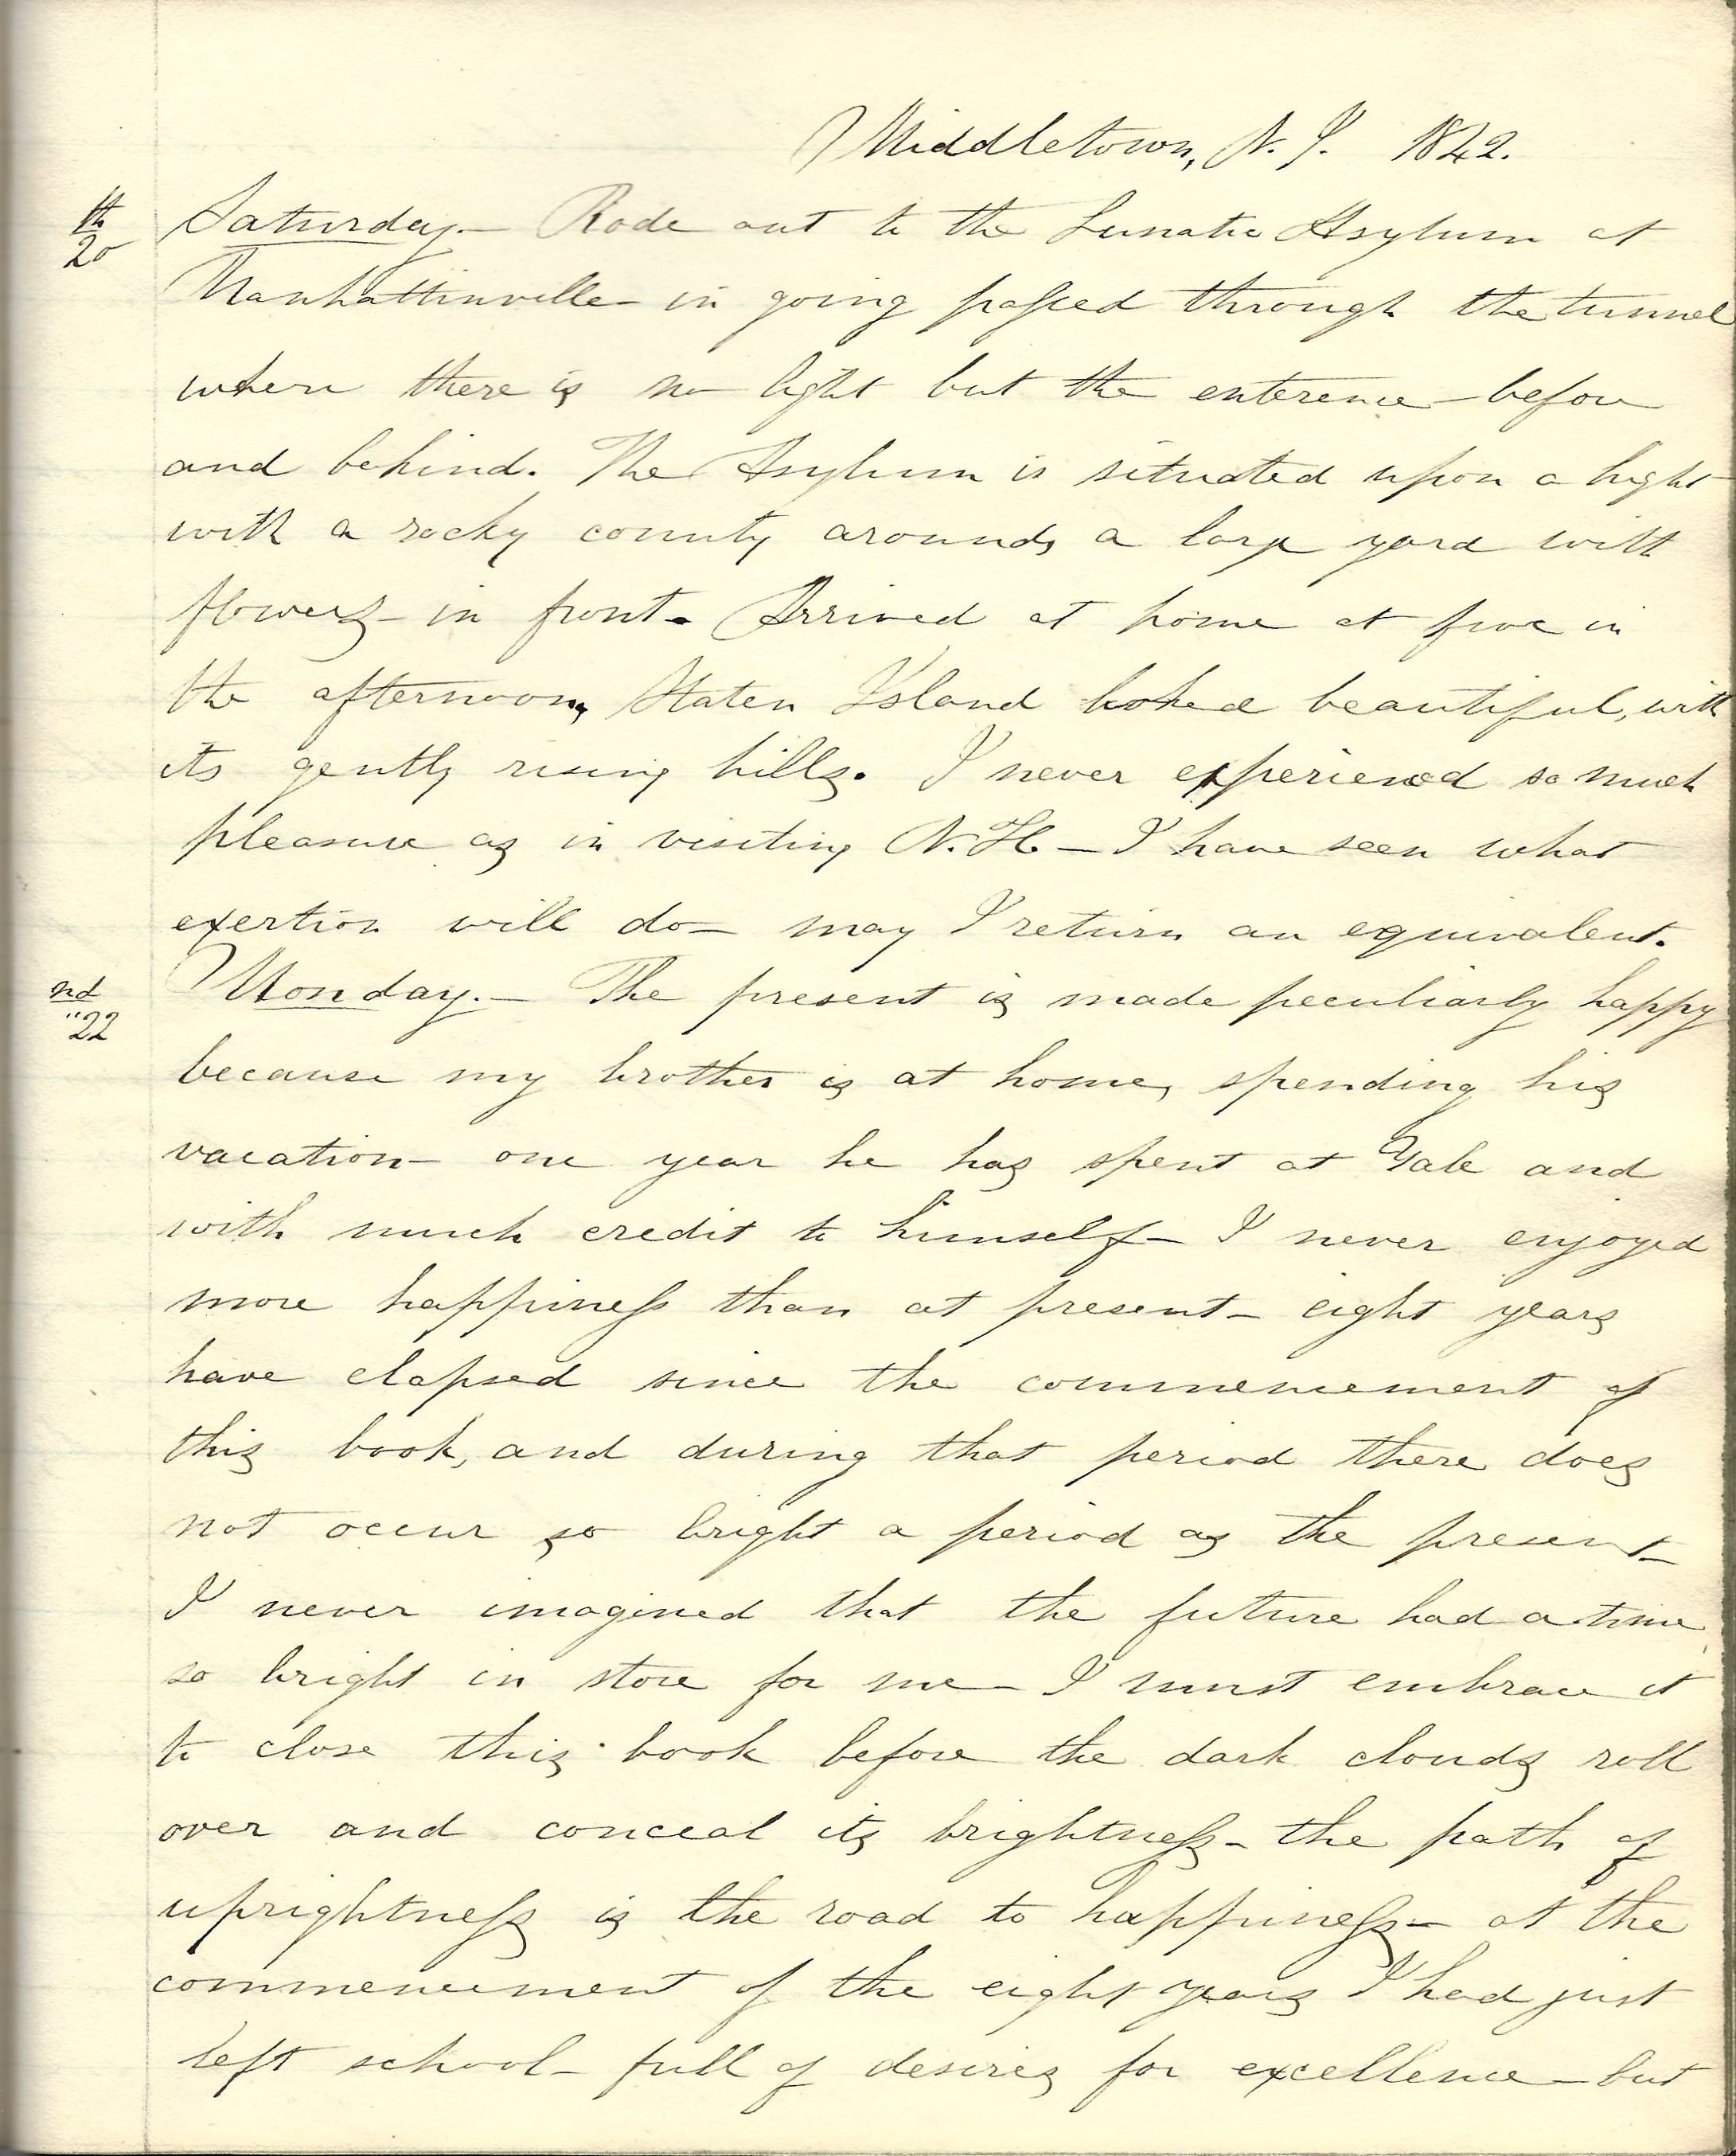 Middletown, N. J. 1842.
th
20
Saturday.— Rode out to the Lunatic Asylum at
Manhattinville— in going passed through the tunnel
where there is no light but the enterence— before
and behind. The Asylum is situated upon a hight
with a rocky county around, a large yard with
flowers— in front. Arrived at home at five in
the afternoon, Staten Island looked beautiful, with
its gently rising hills. I never experienced so much
pleasure as in visiting N. H.— I have seen what
exertion will do— may I return an equivalent.
nd
"22
Monday.— The present is made peculiarly happy
because my brother is at home, spending his
vacation— one year he has spent at Yale and
with much credit to himself— I never enjoyed
more happiness than at present— eight years
have elapsed since the commencement of
this book, and during that period there does
not occur so bright a period as the present—
I never imagined that the future had a time
so bright in store for me— I must embrace it
to close this book before the dark clouds roll
over and conceal its brightness— the path of
uprightness is the road to happiness— at the
commencement of the eight years I had just
left school— full of desires for excellence— but